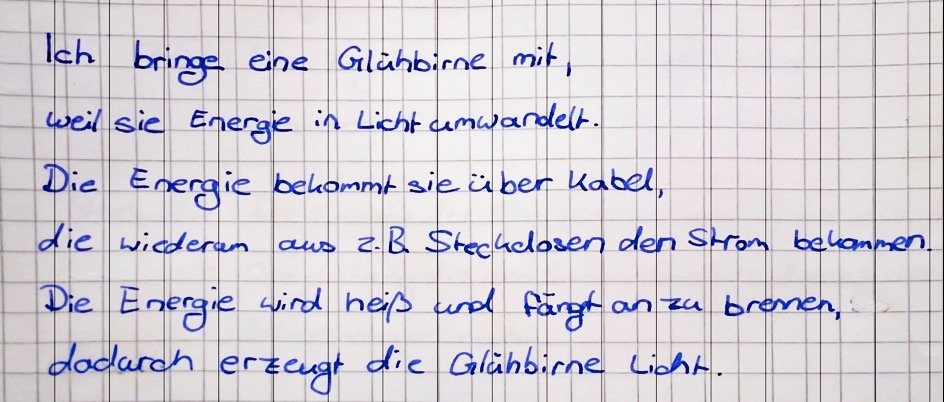 Ich bringe eine Glühbirne mit,
weil sie Energie in Licht umwandelt.
Die Energie bekommt sie über Kabel,
die wiederum aus z.B. Steckdosen den Strom bekommen.
Die Energie wird heiß und fängt an zu bremen,
dadurch erzeugt die Glühbirne Licht.